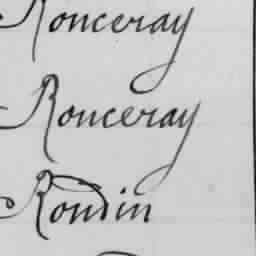 Ronceray
Ronceray
Rondin